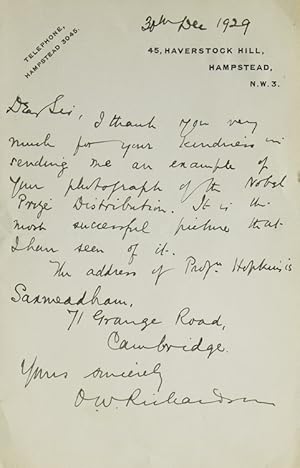 30th Dec 1929
TELEPHONE,
HAMPSTEAD 3045.
45, HAVERSTOCK HILL,
HAMPSTEAD,
N.W.3.
Dear Sir,
I thank you very
much for your kindness in
sending me an example of
your photograph of the Nobel
Prize Distribution. It is the
most successful picture that
I have seen of it.
The address of Profr. Hopkins is
Saxmeadham,
71 Grange Road,
Cambridge.
Yours sincerely
O.W. Richardson